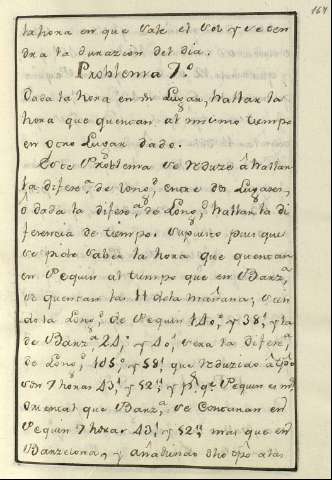 164
la hora en que sale el Sol y se ten
dra la durazion del dia.
Problema 7.º
Dada la hora en un Lugar, hallar la
hora que quentan al mismo tiempo
en otro Lugar dado.
Este Problema se reduze â hallar
la difer.ª de Long.d entre dos Lugares,
ô dada la difer.ª de Long.d hallar la di
ferencia de tiempo. Supuesto pues que
se pide saber la hora que quentan
en Pequin al tiempo que en Barz.ª
se quentan las 11 de la mañana, sien
do la Long.d de Pequin 140.º y 38.' y la
de Barz.ª 24.º y 40.' sera la difer.ª
de Long.d 105.º y 58.' que reduzido â tpô
son 7 horas 43.' y 52." y p.r q.e Pequin es m.s
oriental que Barz.ª se contaran en
Pequin 7 horas 43.' y 52." mas que en
Barzelona, y añadiendo dho tpô a las